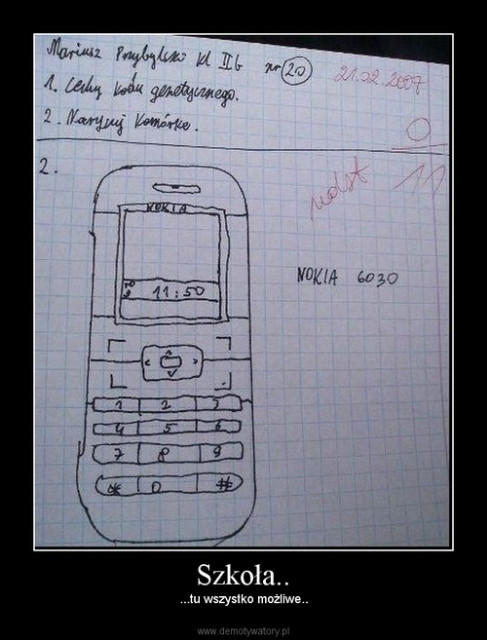 Mariusz Przybylski kl II b nr 20 21.02.2007
1. Cechy kodu genetycznego.
2. Narysuj komórkę.
0
11
ndst
2.
NOKIA
11:50
NOKIA 6030
1 2 3
4 5 6
7 8 9
* 0 #
Szkoła..
...tu wszystko możliwe..
www.demotywatory.pl